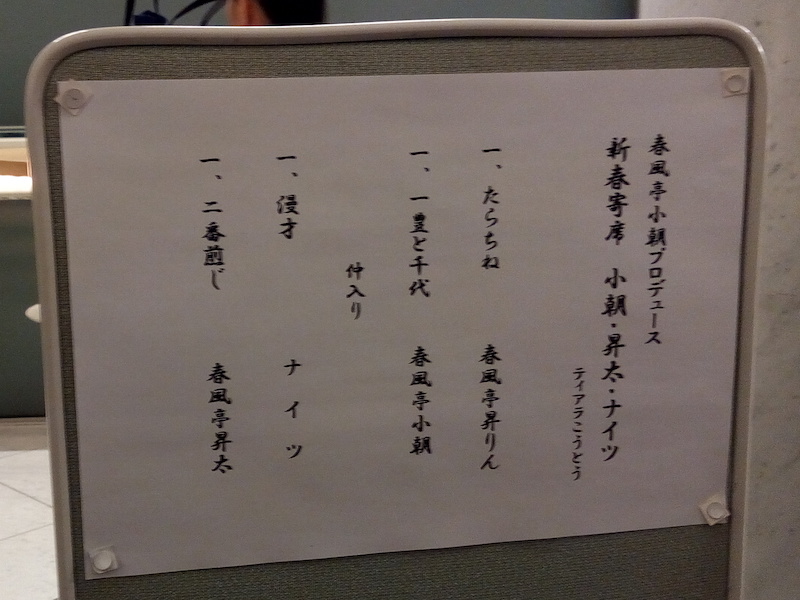 春風亭小朝プロデュース
新春寄席　小朝・昇太・ナイツ
ティアラこうとう
一、たらちね　春風亭昇りん
一、一豊と千代　春風亭小朝
仲入り
一、漫才　ナイツ
一、二番煎じ　春風亭昇太